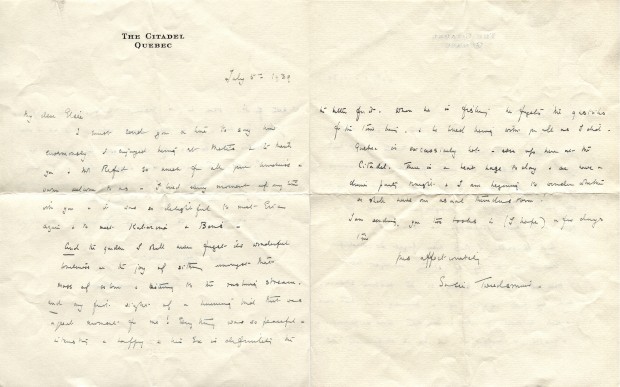 THE CITADEL
QUEBEC
July 5th 1939
My dear Elsie
I must send you a line to say how
enormously I enjoyed being at Metis & to thank
you & Mr Reford so much for all your kindness &
welcome to us. I loved every moment of my time
with you & it was so delightful to meet Eric
again & to meet Katharine & Boris.
And the garden I shall never forget its wonderful
loveliness & the joy of sitting amongst that
mass of colour & listening to the rushing stream.
And my first sight of a humming bird that was
a great moment for me! Every thing was so peaceful &
beautiful & happy & his Ex is definitely the
better for it. When he is fishing he forgets the
of the time being & he loved being with you all as I did.
Quebec is excessively hot up here at the
Citadel. There is a heat haze to day & we have a
dinner party tonight & I am beginning to wonder whether
we shall have an usual thunderstorm.
I am sending you the books in (I hope) a few days
time
Yours affectionately
Susie Tweedsmuir.